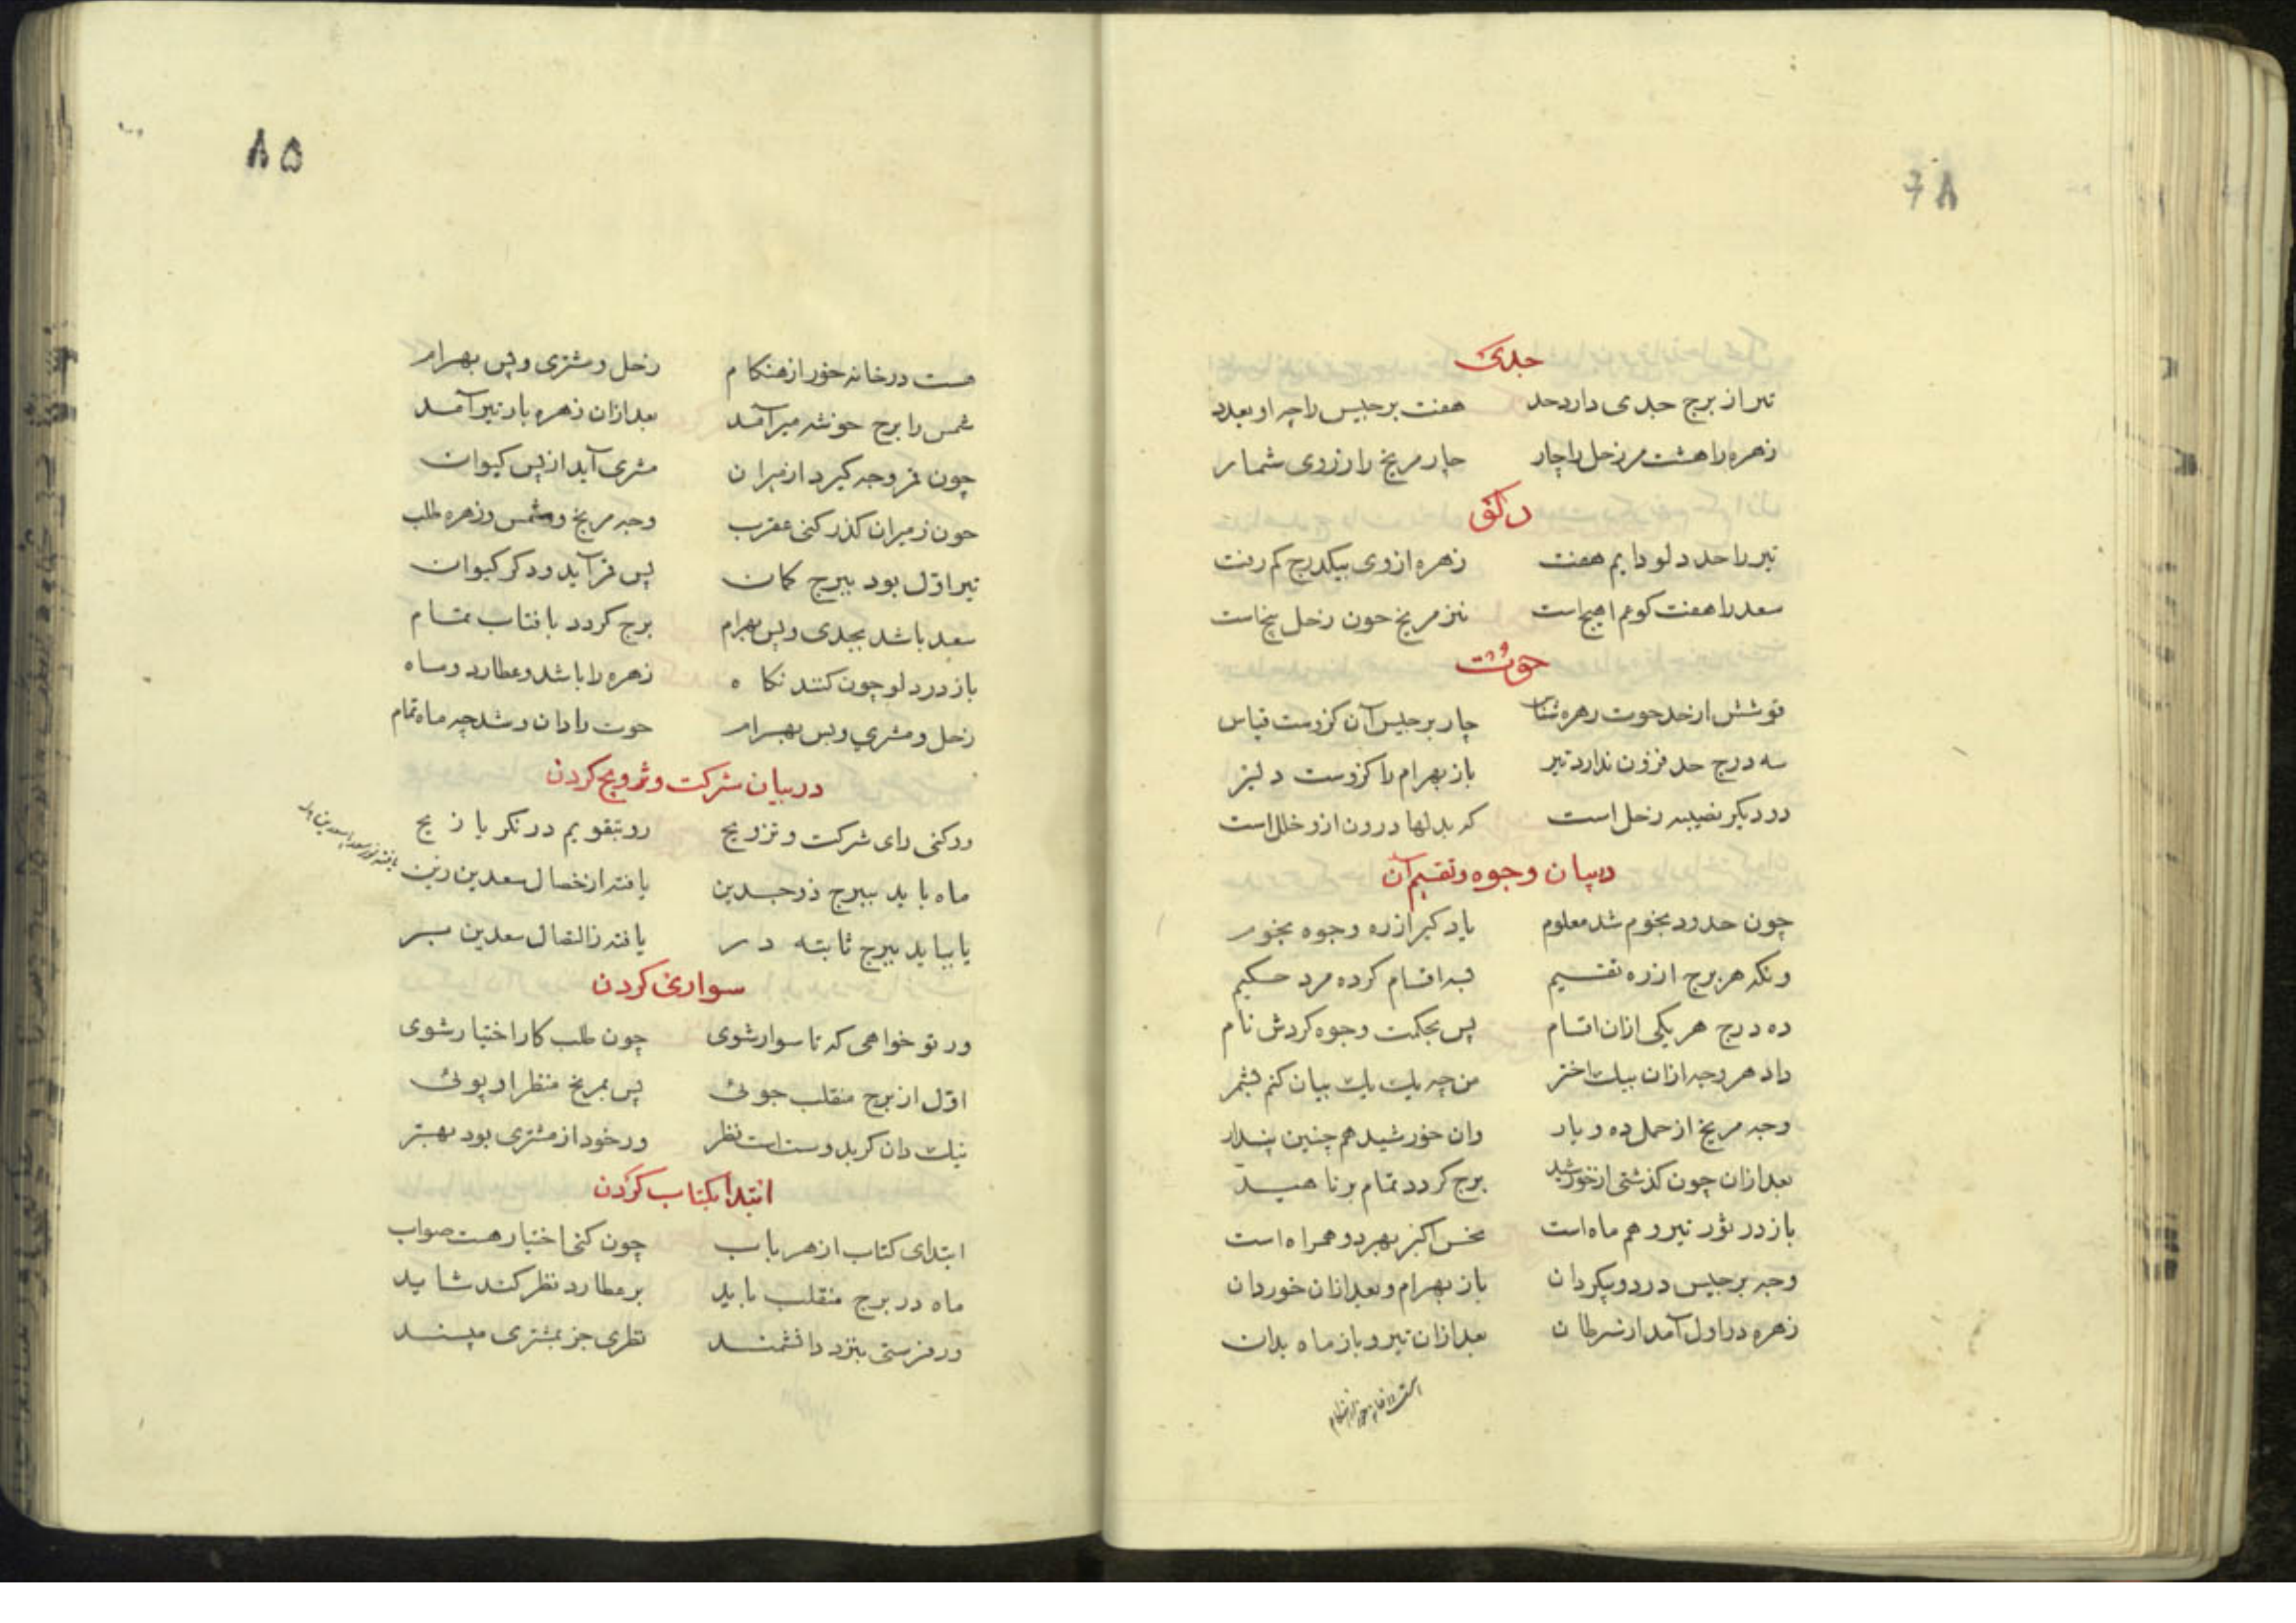 جدی
تیر از برج جدی دارد حد هفت برجیس راچه او بعدد
زهره را هشت مر زحل را چار چار مریخ را ز روی شمار
دلو
تیر را حد دلو دایم هفت زهره از وی بیکدرج کم رفت
سعد را هفت کو هم پنج است نیز مریخ چون زحل پنج است
حوت
ده و شش از حد حوت زهره شناس چار برجیس آن کزوست قیاس
سه درج حد فزون ندارد تیر باز بهرام را کزوست دلیر
دو دیگر نصیبه زحل است که بدلها درون ازو خلل است
در بیان وجوه و تقسیم آن
چون حدود نجوم شد معلوم یاد گیر از ره وجوه نجوم
ونکه هر برج از ره تقسیم بسه اقسام کرده مرد حکیم
ده درج هر یکی ازان اقسام پس بحکمت وجوه کردش نام
داد هر وجه ازان بیک اختر من چه یک یک بیان کنم بشمر
وجه مریخ از حمل ده و یار وان خورشید هم چنین پندار
بعد ازان چون گذشتی از خورشید برج گردد تمام بر ناهید
باز در ثور تیر و هم ماه است نحس اکبر بهر دو همراه است
وجه برجیس در دو پیکر دان باز بهرام و بعد ازان خور دان
زهره در اول آمد از سرطان بعد ازان تیر و باز ماه بدان
هست در خانه خور از هنکام
۸۵
هست در خانه خور از هنکام زحل و مشتری و پس بهرام
شمس را برج خوشه میر آمد بعد ازان زهره باز تیر آمد
چون قمر وجه کیرد از میزان مشری آید از پس کیوان
چون ز میزان گذر کنی عقرب وجه مریخ و شمس و زهره طلب
تیر اوّل بود ببرج کمان پس قمر آید و دکر کیوان
سعد باشد بجدی و پس بهرام برج گردد بافتاب تمام
باز در دلو چون کنند نکاه زهره را باشد و عطارد و ماه
زحل و مشری و پس بهرام حوت را دان و شد چه ماه تمام
در بیان شرکت و تزویج کردن
ور کنی رای شرکت و تزویج رو بتقویم در نکر یا زیج
ماه باید ببرج ذوجسدین یافته از خصال سعدین زین
یا بباید ببرج ثابته در یافته ز اتصال سعدین
سواری کردن
ور تو خواهی که تا سوار شوی چون طلب کار اختیار شوی
اوّل از برج منقلب جوئی پس بمریخ منظر او پوئی
نیک دان کر بدوست است نظر ور خود از مشتری بود بهتر
ابتدا بکتاب کردن
ابتدای کتاب از هر باب چون کنی اختیار هست صواب
ماه در برج منقلب باید بر عطارد نظر کند شاید
ور فرستی بنزد دانشمند نظری جز بمشتری مپسند